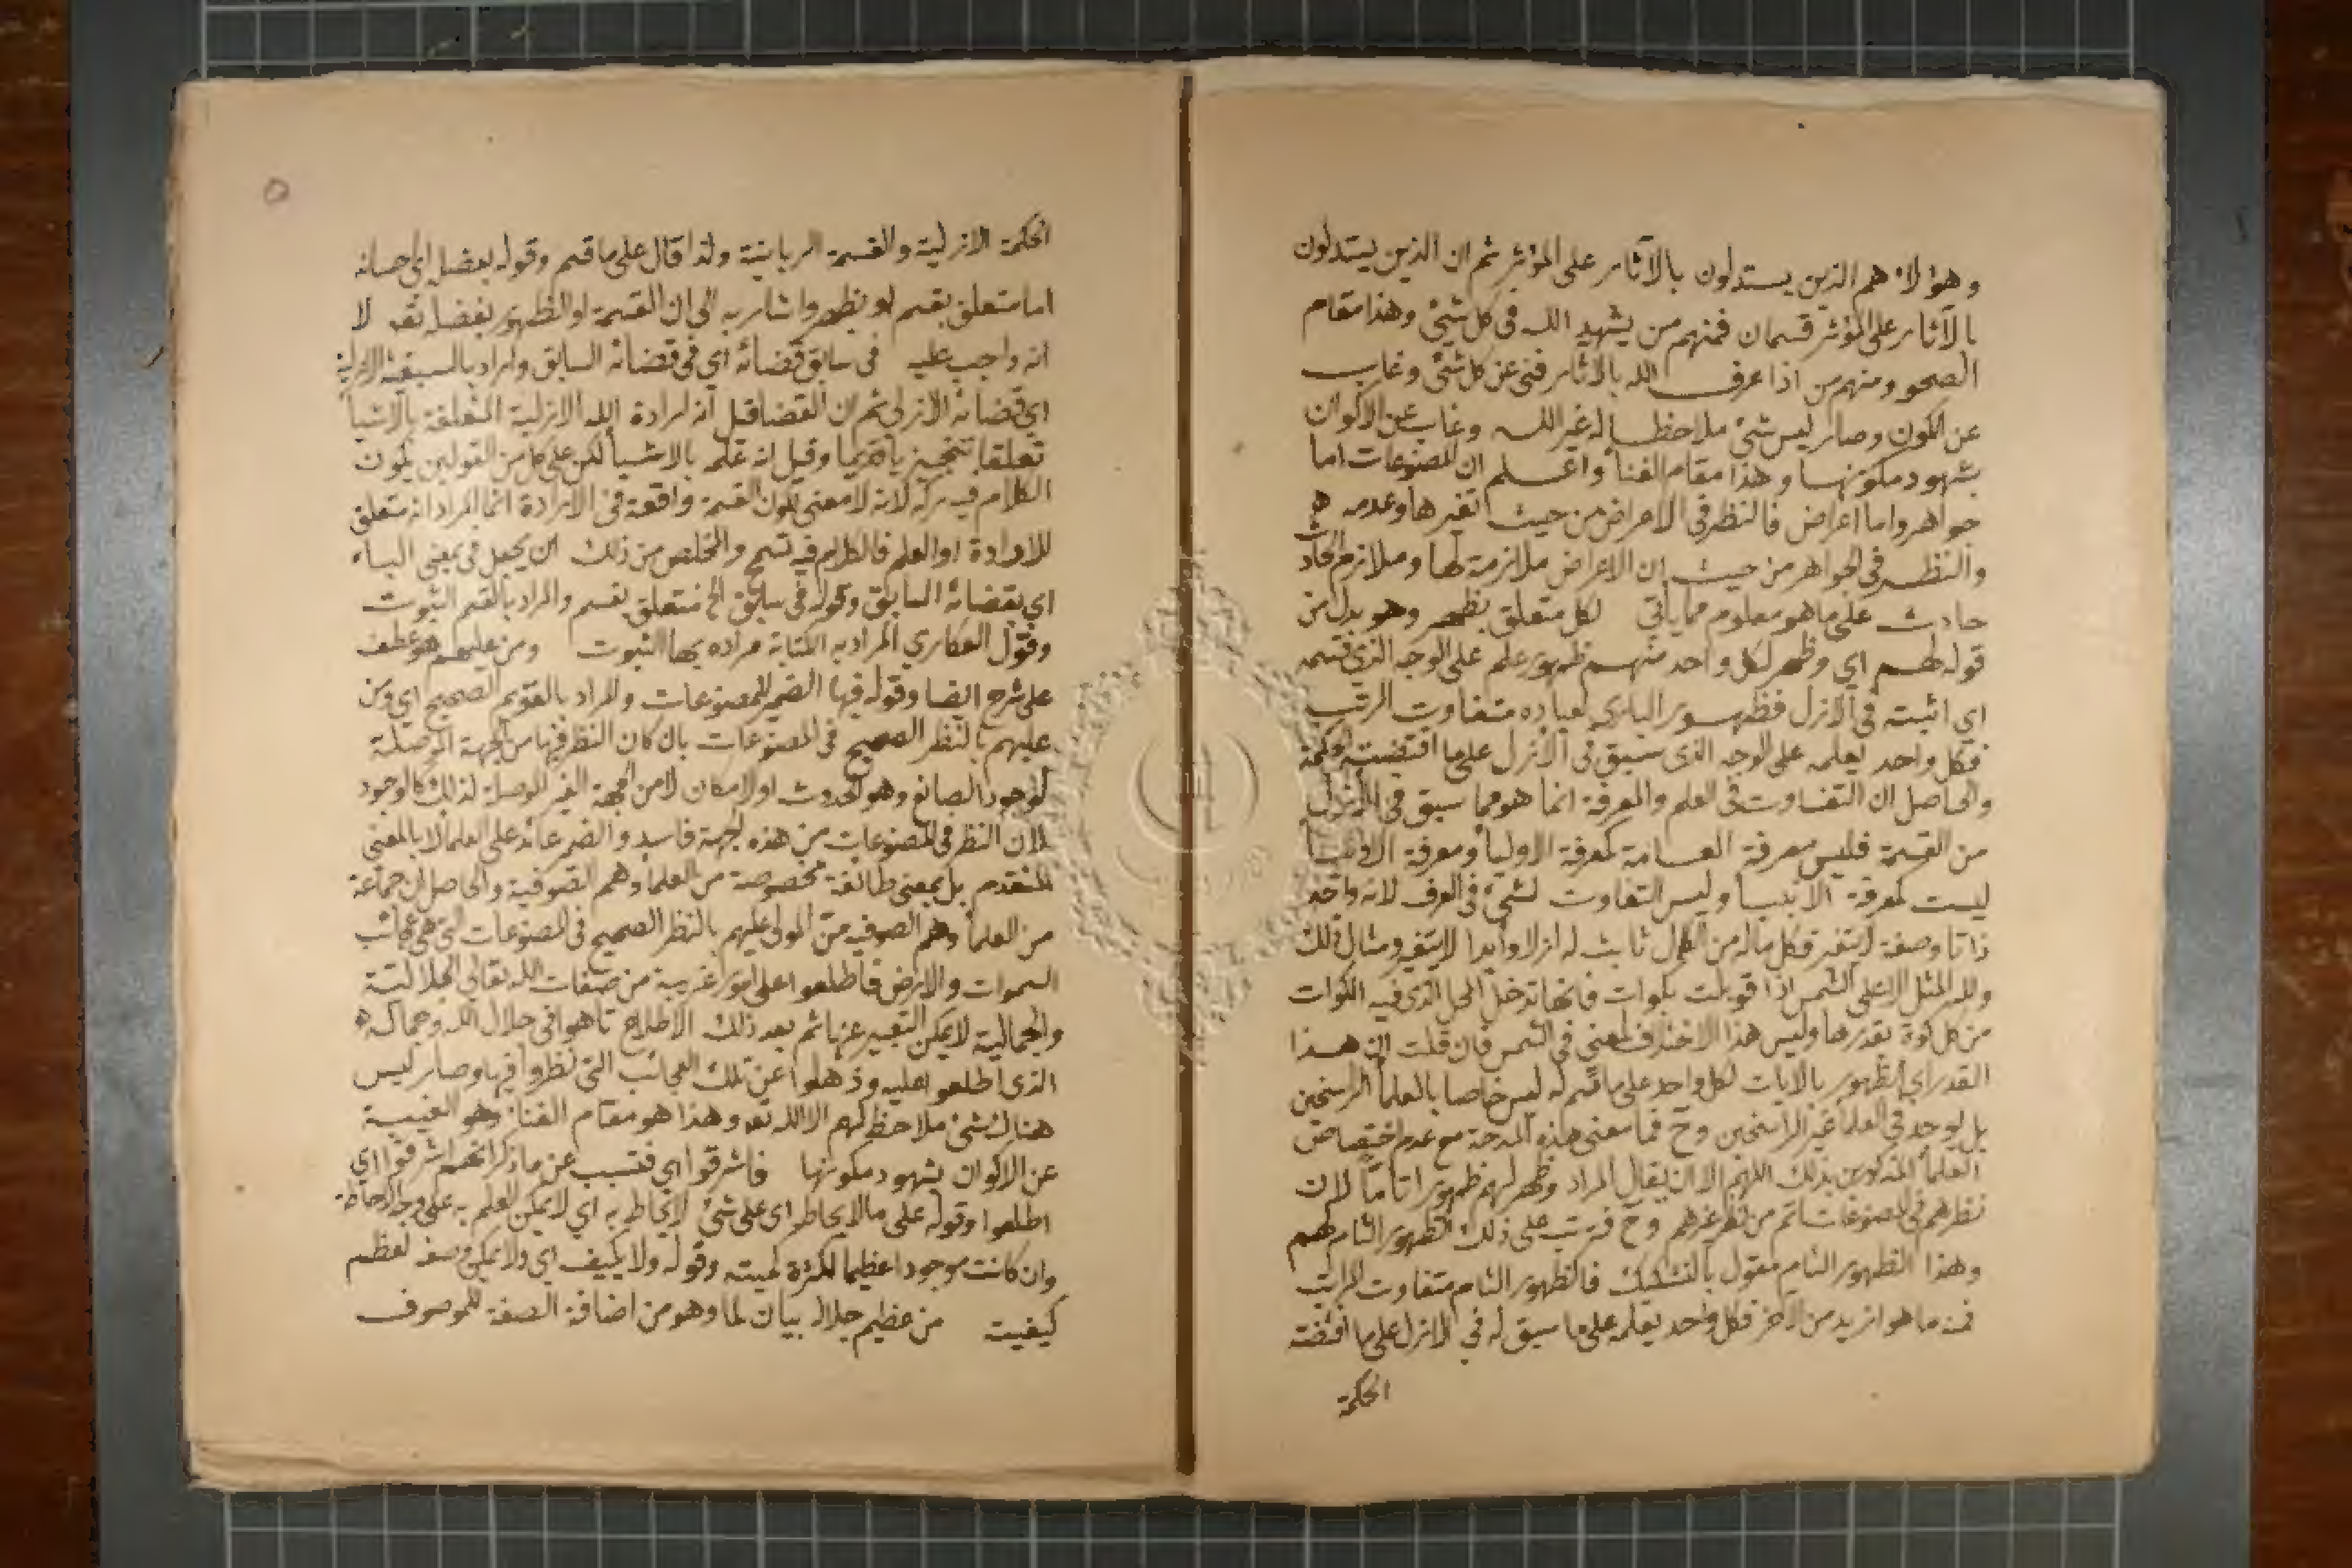 وهؤلاء هم الذين يستدلون بالآثار على المؤثر ثم ان الذين يستدلون
بالآثار على المؤثر قسمان فمنهم من يشهد الله في كل شئ وهذا مقام
الصحو ومنهم من اذا عرف الله بالاثار فنى عن كل شئ وغاب
عن الكون وصار ليس شئ ملاحظا له غير الله وغاب عن الاكوان
بشهود مكونها وهذا مقام الفنا واعلم ان المصنوعات اما
جواهر واما اعراض فالنظر في الاعراض من حيث تغيرها وعدمه
والنظر في الجواهر من حيث ان الاعراض ملازمة لها وملازم الحادث
حادث على ما هو معلوم مما ياتي لكل متعلق بظهر وهو بدل من
قوله لهم اي وظهر لكل واحد منهم ظهور علم على الوجه الذي قسمه
اي اثبته في الازل فظهور الباري لعباده متفاوت الرتب
فكل واحد يعلمه على الوجه الذي سبق في الازل على ما اقتضته الحكمة
والحاصل ان التفاوت في العلم والمعرفة انما هو مما سبق في الازل
من القسمة فليس معرفة العامة كمعرفة الاوليا ومعرفة الاوليا
ليست كمعرفة الانبيا وليس التفاوت لشئ في العرف لانه واحد
ذاتا وصفة لا يتغير فكل ماله من الكمال ثابت له ازلا وابدا لا يتغير ومثال ذلك
ولله المثل الاعلى الشمس اذا قوبلت بكوات فانها تدخل المحل الذي فيه الكوات
من كل كوة بقدرها وليس هذا الاختلاف لمعنى في الشمس فان قلت ان هذا
القدر اي الظهور بالايات لكل واحد على ما قسم له ليس خاصا بالعلما الراسخين
بل يوجد في العلما غير الراسخين وح فما معنى هذه المدحة مع عدم اختصاص
العلما المذكورين بذلك اللهم الا ان يقال المراد وظهر لهم ظهورا تاما لان
نظرهم في المصنوعات اتم من نظر غيرهم وح فرتب على ذلك الظهور التام لهم
وهذا الظهور التام مقول بالتشكيك فالظهور التام متفاوت المراتب
فمنه ما هو ازيد من الاخر فكل واحد يعلمه على ما سبق له في الازل على ما اقتضته
الحكمة
الحكمة الازلية والقسمة الربانية ولذا قال على ما قسم وقوله بفضل اي احسانه
اما متعلق بقسم او بظهر واشار به الى ان القسمة او الظهور بفضله تع لا
انه واجب عليه في سابق قضائه اي في قضائه السابق واراد بالسبقية الازلية
اي قضائه الازلي ثم ان القضا قيل انه ارادة الله الازلية المتعلقة بالاشيا
تعلقا تنجيزيا قديما وقيل انه علمه بالاشيا لكن على كل من القولين يكون
الكلام فيه ركة لانه لا معنى لكون القسمة واقعة في الارادة انما المراد انه متعلق
للارادة او العلم فالكلام فيه تسمح والمخلص من ذلك ان يجعل في بمعنى الباء
اي بقضائه السابق وقوله في سابق الخ متعلق بقسم والمراد بالقسم الثبوت
وقول العكاري المراد به الكتابة مراده بها الثبوت ومن عليهم هو عطف
على شرح ايضا وقوله فيها الضمير للمصنوعات والمراد بالقويم الصحيح اي ومن
عليهم بالنظر الصحيح في المصنوعات بان كان النظر فيها من الجهة الموصلة
لوجود الصانع وهو الحدوث او الامكان لا من الجهة الغير الموصلة لذلك كالوجود
لان النظر في المصنوعات من هذه الجهة فاسد والضمير عائد على العلما لا بالمعنى
المتقدم بل بمعنى طائفة مخصوصة من العلما وهم الصوفية والحاصل ان جماعة
من العلما وهم الصوفية من المولى عليهم بالنظر الصحيح في المصنوعات التي هي عجائب
السموات والارض فاطلعوا على امور غريبة من صفات الله تعالى الجلالية
والجمالية لا يمكن التعبير عنها ثم بعد ذلك الاطلاع تاهوا في جلال الله وجماله
الذي اطلعوا عليه وذهلوا عن تلك العجائب التي نظروا فيها وصار ليس
هناك شئ ملاحظ لهم الا الله تع وهذا هو مقام الفنا وهو الغيبة
عن الاكوان بشهود مكونها فاشرفوا اي فتسبب عن ما ذكر انهم اشرفوا اي
اطلعوا وقوله على ما لا يحاط اي على شئ لا يحاط به اي لا يمكن العلم به على وجه الاحاطة
وان كانت موجودا عظيما لكثرة كميته وقوله ولا يكيف اي ولا يمكن وصفه لعظم
كيفيت من عظيم جلاله بيان لما وهو من اضافة الصفة للموصوف